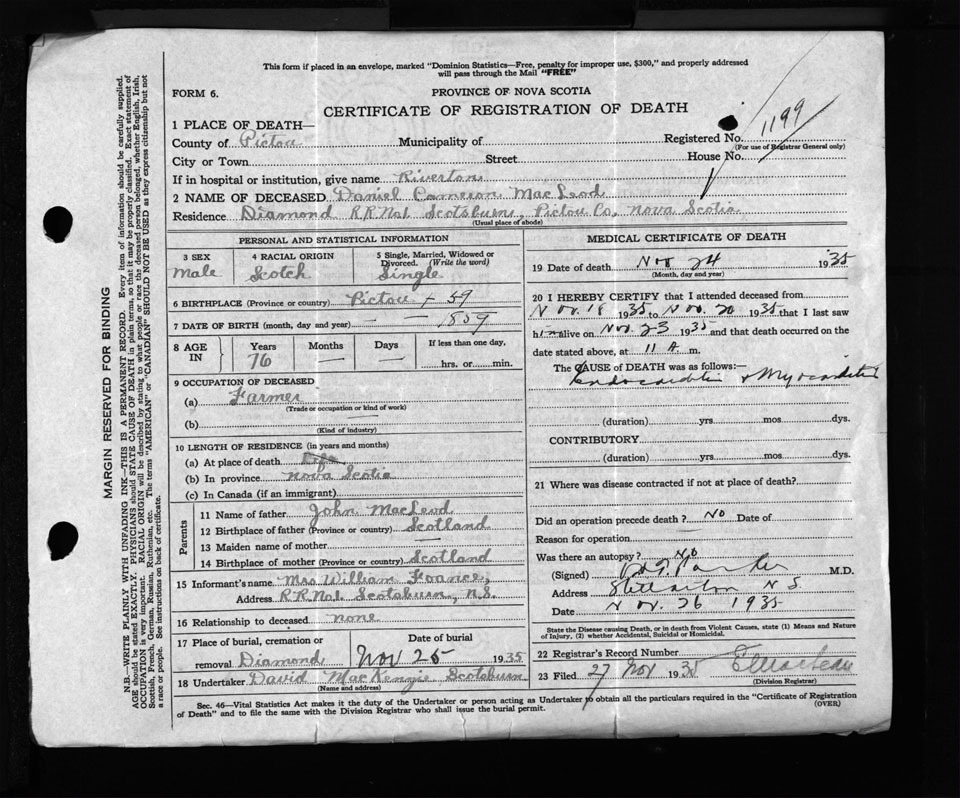 This form if placed in an envelope, marked "Dominion Statistics—Free, penalty for improper use, $300," and properly addressed
will pass through the Mail "FREE"
FORM 6.
PROVINCE OF NOVA SCOTIA
CERTIFICATE OF REGISTRATION OF DEATH
1 PLACE OF DEATH—
County of Pictou Municipality of Registered No. 1199
(For use of Registrar General only)
City or Town Street House No.
If in hospital or institution, give name Riverton
2 NAME OF DECEASED Daniel Cameron MacLeod
Residence Diamond R.R.No1. Scotsburn, Pictou Co, Nova Scotia
(Usual place of abode)
PERSONAL AND STATISTICAL INFORMATION
3 SEX 4 RACIAL ORIGIN 5 Single, Married, Widowed or
Divorced. (Write the word)
Male Scotch Single
6 BIRTHPLACE (Province or country) Pictou + 59
7 DATE OF BIRTH (month, day and year) — — 1859
8 AGE IN Years Months Days If less than one day,
76 — — hrs. or min.
9 OCCUPATION OF DECEASED
(a) Farmer
(Trade or occupation or kind of work)
(b)
(Kind of industry)
10 LENGTH OF RESIDENCE (in years and months)
(a) At place of death Life
(b) In province Nova Scotia
(c) In Canada (if an immigrant)
Parents
11 Name of father John MacLeod
12 Birthplace of father (Province or country) Scotland
13 Maiden name of mother —
14 Birthplace of mother (Province or country) Scotland
15 Informant's name Mrs William
Address R.R.No1. Scotsburn, N.S.
16 Relationship to deceased none
17 Place of burial, cremation or Date of burial
removal Diamond Nov 25 1935
18 Undertaker David MacKenzie Scotsburn
(Name and address)
MEDICAL CERTIFICATE OF DEATH
19 Date of death Nov 24 1935
(Month, day and year)
20 I HEREBY CERTIFY that I attended deceased from
Nov. 18 1935 to Nov. 20 1935 that I last saw
him alive on Nov. 23 1935 and that death occurred on the
date stated above, at 11 A. m.
The CAUSE OF DEATH was as follows:—
Endocarditis + Myocarditis
(duration) yrs mos dys.
CONTRIBUTORY
(duration) yrs mos dys.
21 Where was disease contracted if not at place of death?
Did an operation precede death? No Date of
Reason for operation
Was there an autopsy? No
(Signed) M.D.
Address Stellarton N S
Date Nov. 26 1935
State the Disease causing Death, or in death from Violent Causes, state (1) Means and Nature
of Injury, (2) whether Accidental, Suicidal or Homicidal.
22 Registrar's Record Number
23 Filed 27 Nov 1935
(Division Registrar)
Sec. 46—Vital Statistics Act makes it the duty of the Undertaker or person acting as Undertaker to obtain all the particulars required in the "Certificate of Registration
of Death" and to file the same with the Division Registrar who shall issue the burial permit.
(OVER)
MARGIN RESERVED FOR BINDING
N.B.—WRITE PLAINLY WITH UNFADING INK—THIS IS A PERMANENT RECORD. Every item of information should be carefully supplied.
AGE should be stated EXACTLY. PHYSICIANS should STATE CAUSE OF DEATH in plain terms, so that it may be properly classified. Exact statement of
OCCUPATION is very important. RACIAL ORIGIN will be described by stating to what people or race the deceased person belonged, whether English, Irish,
Scottish, French, German, Russian, Ruthenian, etc. The terms "AMERICAN" or "CANADIAN" SHOULD NOT BE USED as they express citizenship but not
a race or people. See instructions on back of certificate.